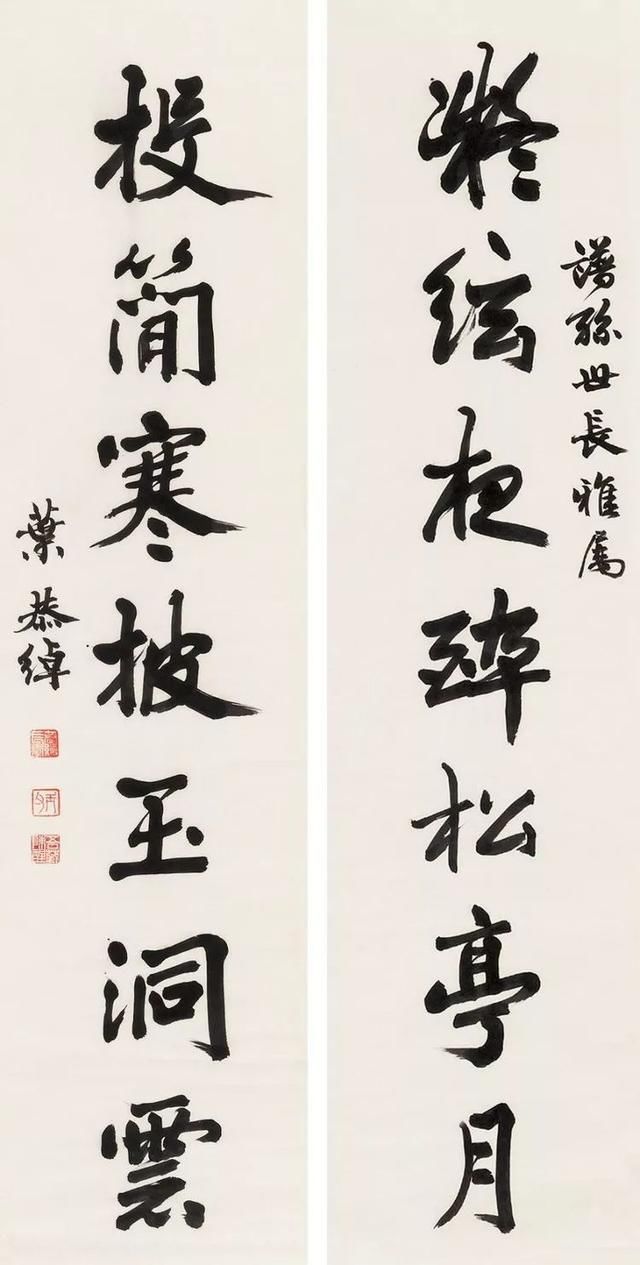 譜孫世長雅屬
凝絃夜醉松亭月
投簡寒披玉洞雲
葉恭綽